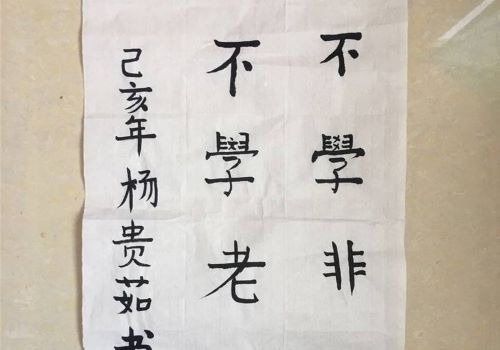 不學非
不學老
己亥年杨贵茹书